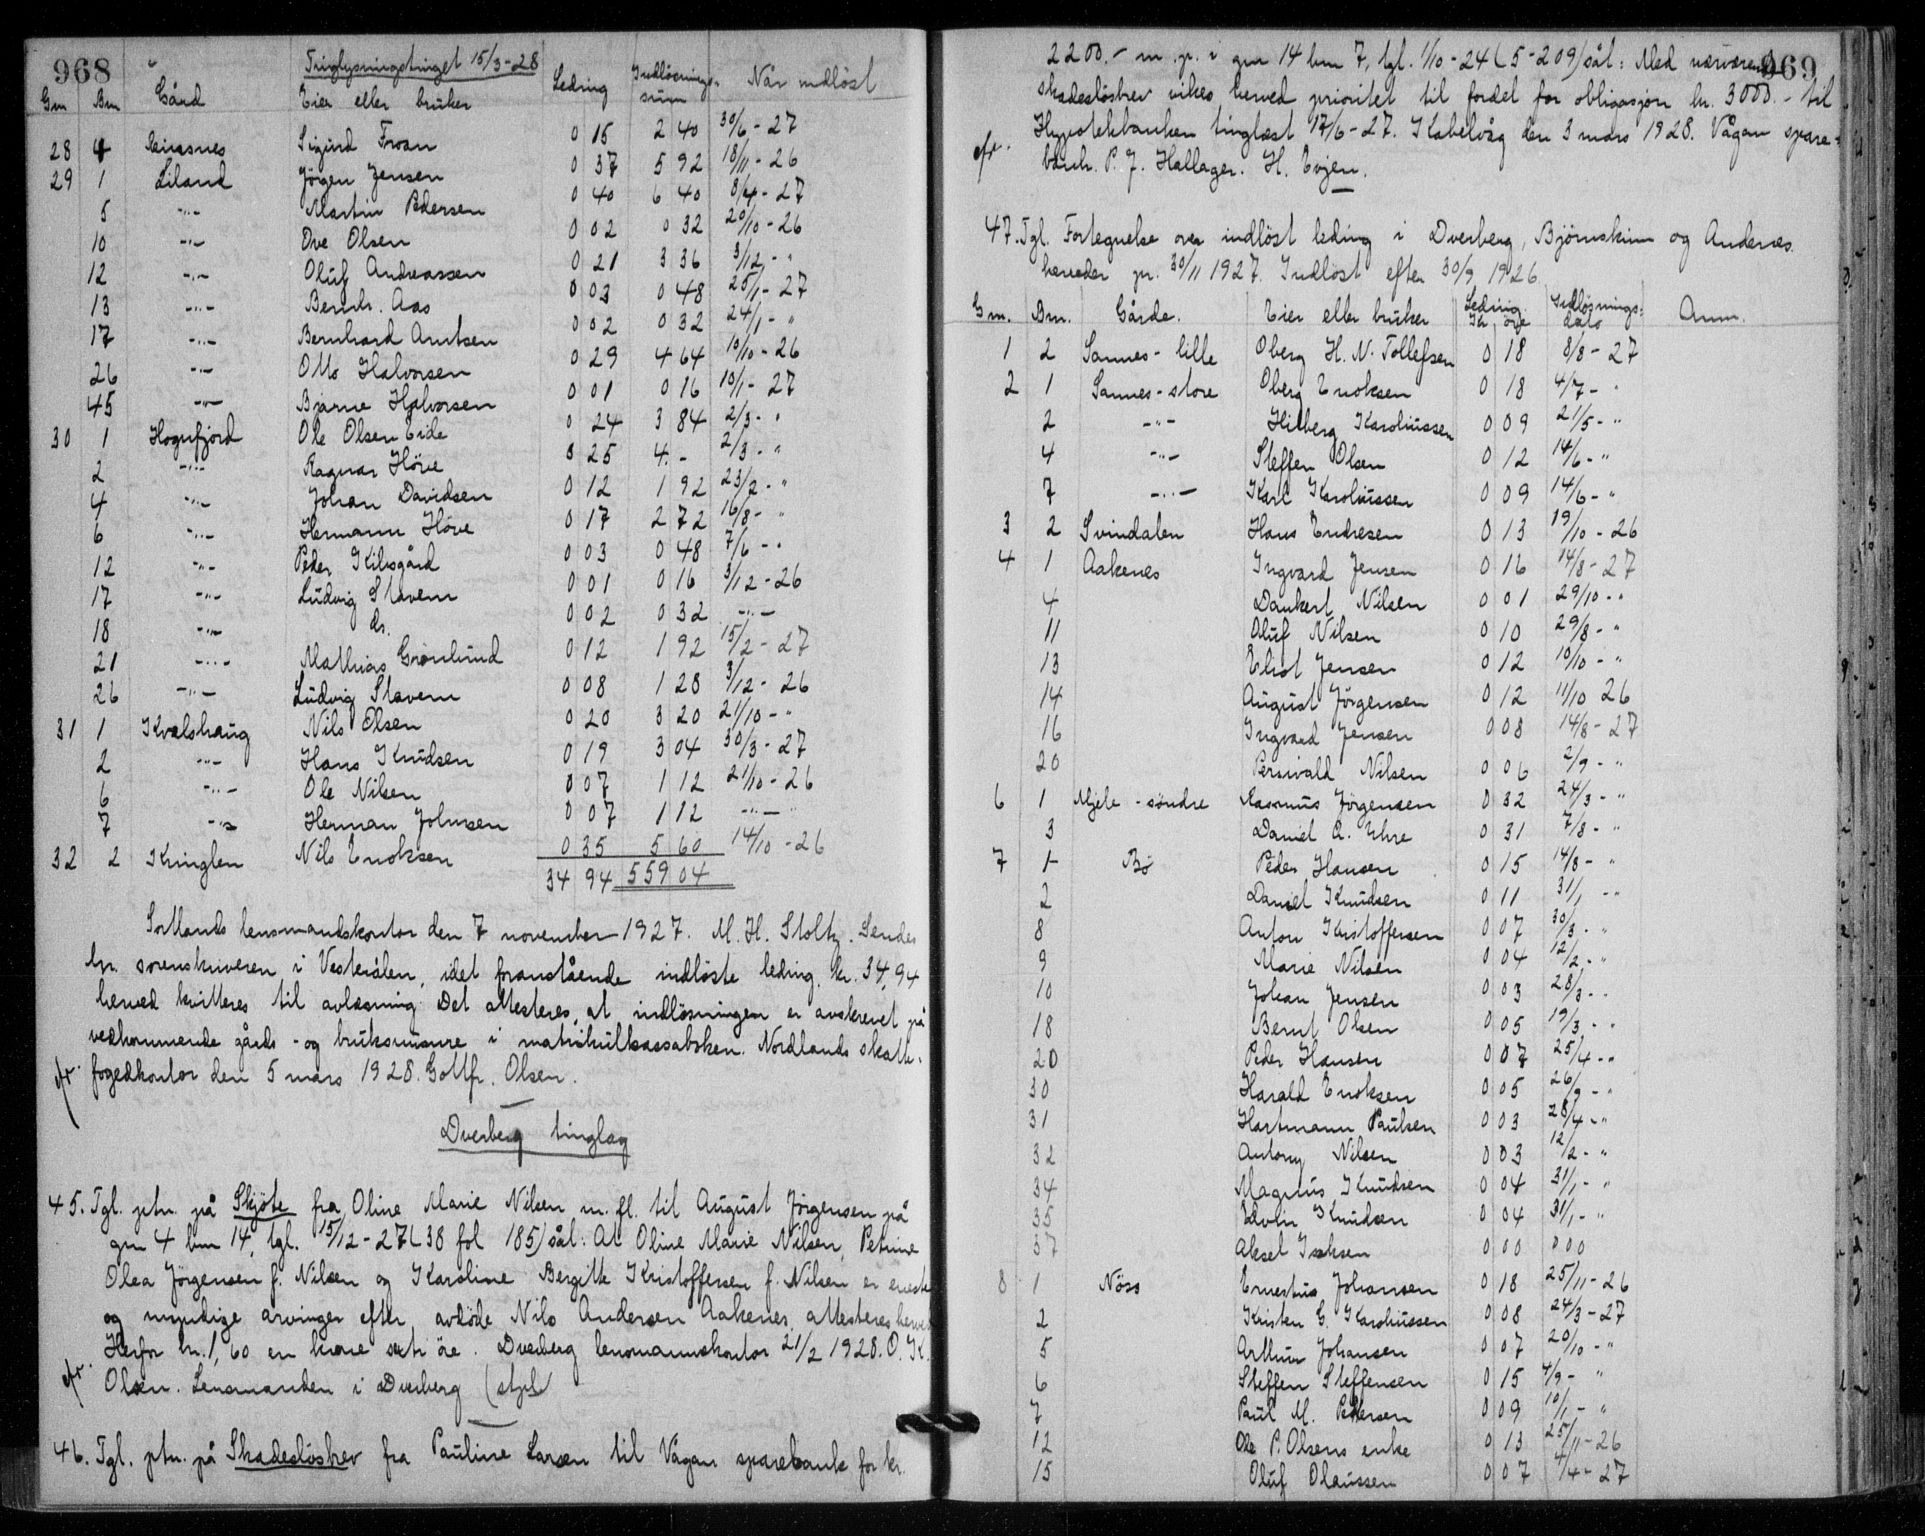 968
Tinglysningstinget 15/3-28
Gnr Bnr Gård Eier eller bruker Leding Indløsnings- sum Når indløst
28 4 Sigurd Froan 0 15 2 40 30/6-27
29 1 Liland Jörgen Jensen 0 37 5 92 18/11-26
5 -"- Martin Pedersen 0 40 6 40 8/4-27
10 -"- Ove Olsen 0 02 0 32 20/10-26
12 -"- Oluf Andreassen 0 21 3 36 3/12-"
13 -"- Bernh. Aas 0 03 0 48 25/1-27
17 -"- Bernhard Arntsen 0 02 0 32 24/1-"
26 -"- Otto Halvorsen 0 29 4 64 10/10-26
45 -"- Bjarne Halvorsen 0 01 0 16 10/1-27
30 1 Hognfjord Ole Olsen Eide 0 24 3 84 2/3-"
2 -"- Ragnar Höve 0 25 4.- 2/3-"
4 -"- Johan Davidsen 0 12 1 92 23/2-"
6 -"- Hermann Höve 0 17 2 72 16/8-"
12 -"- Peder Kilsgård 0 03 0 48 7/6-"
17 -"- Ludvig Stavem 0 01 0 16 3/12-26
18 -"- ds. 0 02 0 32 -"-
21 -"- Mathias Grönlund 0 12 1 92 15/2-27
26 -"- Ludvig Stavem 0 08 1 28 3/12-26
31 1 Kvalshaug Nils Olsen 0 20 3 20 21/10-"
2 -"- Hans Knudsen 0 19 3 04 30/3-27
6 -"- Ole Nilsen 0 07 1 12 21/10-26
7 -"- Herman Johnsen 0 07 1 12 -"-
32 2 Kringlen Nils Enoksen 0 35 5 60 14/10-26
34 94 559 04
Sortlands lensmandskontor den 7 november 1927. M. H. Stoltz. Sendes
hr. sorenskriveren i Vesterålen, idet foranstående indlöste leding kr. 34,94
herved kvitteres til avlæsning. Det attesteres, at indlösningen er avskrevet på
vedkommende gårds- og bruksnumre i matrikulkassaboken. Nordlands skatte-
fogedkontor den 5 mars 1928. Gottfr. Olsen.
Dverberg tinglag
45. Tgl. ptn. på Skjöte fra Oline Marie Nilsen m. fl. til August Jörgensen på
gnr 4 bnr 14, tgl. 15/12-27 (38 fol 185) sål: At Oline Marie Nilsen, Petrine
Olea Jörgensen f. Nilsen og Karoline Bergitte Kristoffersen f. Nilsen er eneste
og myndige arvinger efter avdöde Nils Andersen Aakenes attesteres herved
Herfor kr. 1,60 en krone seksti öre. Dverberg lensmannskontor 21/2 1928. O. K.
Olsen. Lensmanden i Dverberg (stpl.)
46. Tgl. ptn. på Skadeslösbrev fra Pauline Larsen til Vågan sparebank for kr.
969
2200,- m. p. i gnr 14 bnr 7, tgl. 1/10-24 (5-209) sål: Med nærværende
skadeslösbrev vikes herved prioritet til fordel for obligasjon kr. 3000.- til
Hypotekbanken tinglæst 17/6-27. Kabelvåg den 3 mars 1928. Vågan spare-
bank. P. J. Hallager. H. Evjen.
47. Tgl. Fortegnelse over indlöst leding i Dverberg, Bjørnskinn og Andenes
herreder pr. 30/11 1927. Indlöst efter 30/9 1926.
Gnr. Bnr. Gårde. Eier eller bruker Leding Kr öre Indløsnings- dato Anm.
1 2 Sannes-lille Oberg H. N. Tollefsen 0 18 8/8-27
2 1 Sannes-store Oberg Enoksen 0 18 4/7-"
2 -"- Hilberg Karoliussen 0 09 21/5-"
4 -"- Steffen Olsen 0 12 14/6-"
7 -"- Karl Karoliussen 0 09 14/6-"
3 2 Svindalen Hans Endresen 0 13 19/10-26
4 1 Aakenes Ingvard Jensen 0 16 14/8-27
4 Dankert Nilsen 0 01 29/10-"
11 Oluf Nilsen 0 10 29/8-"
13 Eliot Jensen 0 12 10/10-"
14 August Jörgensen 0 12 11/10 26
16 Ingvard Jensen 0 08 14/8-27
20 Persivald Nilsen 0 06 2/9-"
6 1 Mjele-söndre Rasmus Jörgensen 0 32 24/3-"
3 Daniel A. Uhre 0 31 7/8-"
7 1 Bö Peder Hansen 0 15 14/8-"
2 Daniel Knudsen 0 11 31/1 -"
8 Anton Kristoffersen 0 07 30/3-"
9 Marie Nilsen 0 04 12/2-"
10 Johan Jensen 0 03 28/3-"
18 Bernt Olsen 0 05 19/3-"
20 Peder Hansen 0 07 25/4-"
30 Harald Enoksen 0 05 26/9-"
31 Hartmann Paulsen 0 03 28/4-"
32 Antony Nilsen 0 03 12/2-"
34 Magnus Knudsen 0 04 31/1-"
35 Edvin Knudsen 0 04 31/1-"
37 Aksel Isaksen 0 00 000
8 1 Nöss Ernestus Johansen 0 18 25/11-26
2 Kristen E. Karoliussen 0 08 24/3-27
5 Arthur Johansen 0 07 20/10-"
6 Steffen Steffensen 0 15 4/9-"
7 Paul M. Pedersen 0 09 10/1-"
12 Ole P. Olsens enke 0 13 25/11-26
15 Oluf Olaussen 0 07 4/4-27